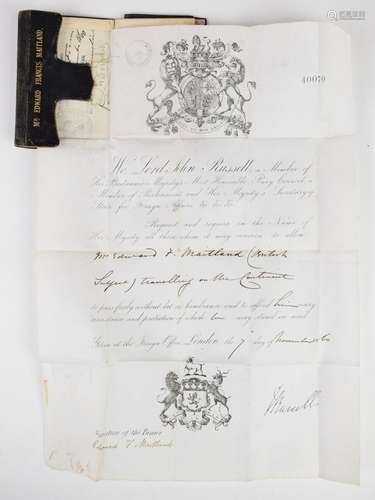 Mr EDWARD FRANCIS MAITLAND.
40070
We Lord John Russell, a Member of
Her Britannic Majesty's Most Honorable Privy Council
Member of Parliament and Her Majesty's Secretary of
State for Foreign Affairs &c &c &c
Request and require in the Name of
Her Majesty all those whom it may concern to allow
Mr Edward F. Maitland (British
Subject) travelling on the Continent
to pass freely without let or hindrance and to afford him every
assistance and protection of which he may stand in need
Given at the Foreign Office, London, the 7 day of November
Signature of the Bearer
Edward F Maitland
JRussell